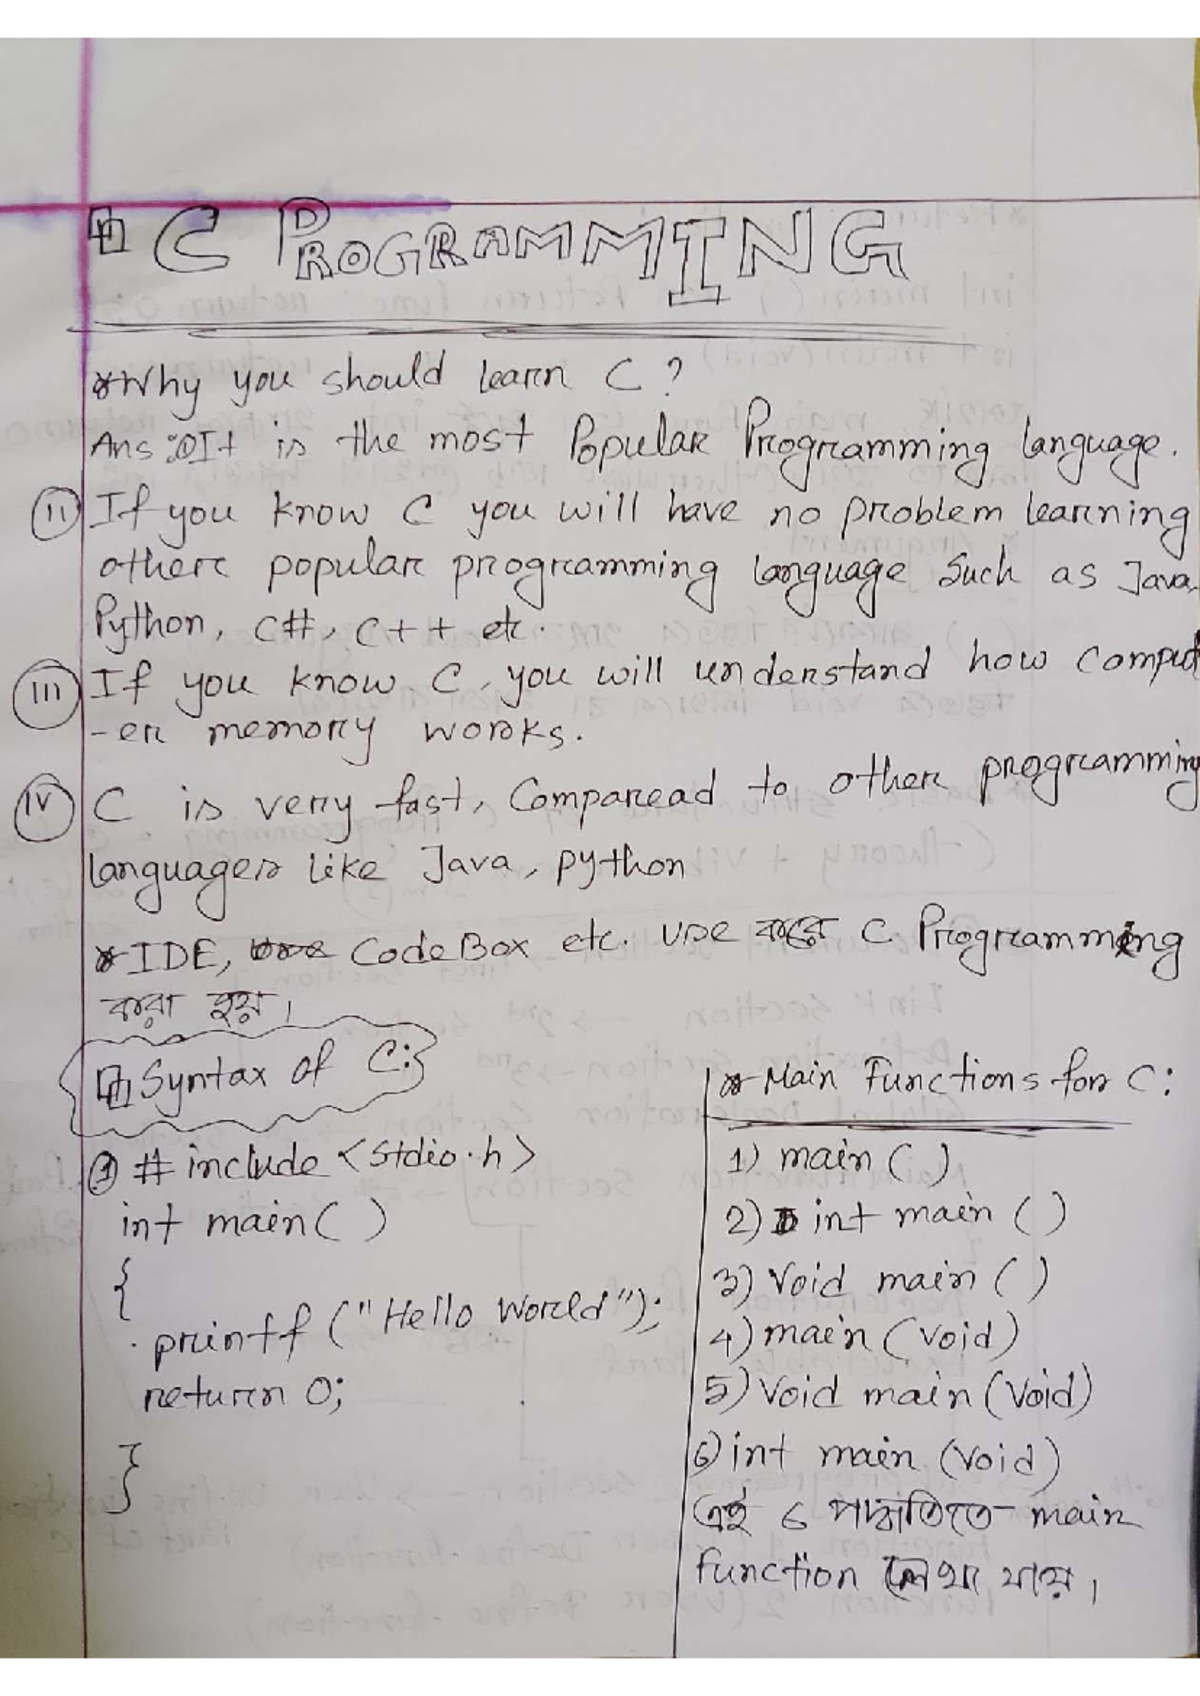 C PROGRAMMING
*Why you should learn C?
Ans: i It is the most Popular Programming language.
ii If you know C you will have no problem learning
other popular programming language Such as Java,
Python, C#, C++ etc.
iii If you know C, you will understand how comput
-er memory works.
iv C is very fast, Comparead to other programming
languages like Java, python
*IDE, CodeBox etc. use করে C Programming
করা হয়।
Syntax of C:
① #include <stdio.h>
int main( )
{
printf ("Hello World");
return 0;
}
* Main Functions for C:
1) main ( )
2) int main ( )
3) Void main ( )
4) main (void)
5) Void main (void)
6) int main (void)
এই ৬ পদ্ধতিতে main
function লেখা যায়।